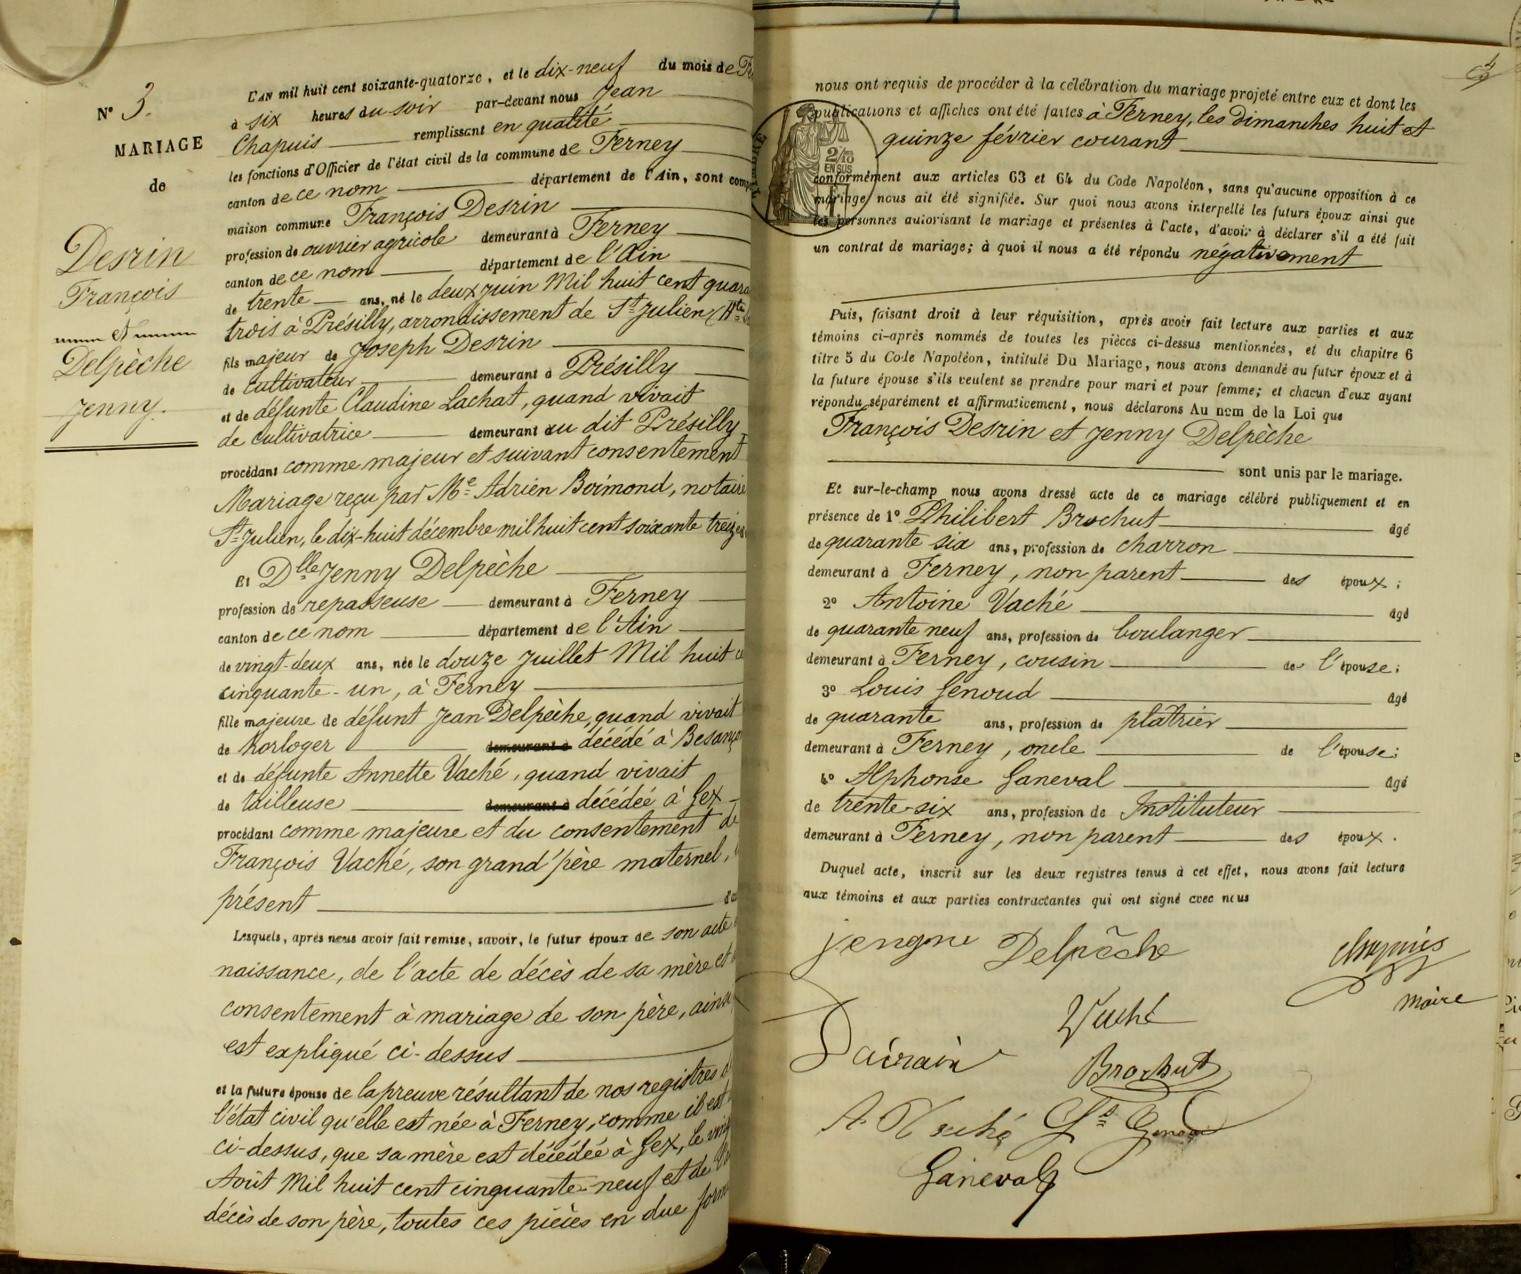 N° 3.
MARIAGE
de
Desrin
François
et
Delpèche
Jenny.
L'AN mil huit cent soixante-quatorze, et le dix-neuf du mois de
à six heures du soir par-devant nous Jean
Chapuis remplissant en qualité
les fonctions d'Officier de l'état civil de la commune de Ferney
canton de ce nom département de l'Ain, sont
maison commune François Desrin
profession de ouvrier agricole demeurant à Ferney
canton de ce nom département de l'Ain
de trente ans, né le deux Juin Mil huit cent
trois à Présilly, arrondissement de St Julien (Hte
fils majeur de Joseph Desrin
de cultivateur demeurant à Présilly
et de défunte Claudine Lachat, quand vivait
de cultivatrice demeurant au dit Présilly
procédant comme majeur et suivant consentement
Mariage reçu par Me Adrien Boimond, notaire
St Julien, le dix-huit décembre mil huit cent soixante treize
Et Dlle Jenny Delpèche
profession de repasseuse demeurant à Ferney
canton de ce nom département de l'Ain
de vingt-deux ans, née le douze Juillet Mil huit
cinquante-un, à Ferney
fille majeure de défunt Jean Delpèche, quand vivait
de horloger demeurant à décédé à
et de défunte Annette Vaché, quand vivait
de tailleuse demeurant à décédée à Gex
procédant comme majeure et du consentement de
François Vaché, son grand'père maternel,
présent
Lesquels, après nous avoir fait remise, savoir, le futur époux de son acte
naissance, de l'acte de décès de sa mère et
consentement à mariage de son père, ainsi
est expliqué ci-dessus
et la future épouse de la preuve résultant de nos registres
l'état civil qu'elle est née à Ferney, comme il est
ci-dessus, que sa mère est décédée à Gex, le
Août Mil huit cent cinquante-neuf et de
décès de son père, toutes ces pièces en due
nous ont requis de procéder à la célébration du mariage projeté entre eux et dont les
publications et affiches ont été faites à Ferney, les dimanches huit et
quinze février courant
2/10
EN SUS
conformément aux articles 63 et 64 du Code Napoléon, sans qu'aucune opposition à ce
mariage nous ait été signifiée. Sur quoi nous avons interpellé les futurs époux ainsi que
les personnes autorisant le mariage et présentes à l'acte, d'avoir à déclarer s'il a été fait
un contrat de mariage; à quoi il nous a été répondu négativement
Puis, faisant droit à leur réquisition, après avoir fait lecture aux parties et aux
témoins ci-après nommés de toutes les pièces ci-dessus mentionnées, et du chapitre 6
titre 5 du Code Napoléon, intitulé Du Mariage, nous avons demandé au futur époux et à
la future épouse s'ils veulent se prendre pour mari et pour femme; et chacun d'eux ayant
répondu séparément et affirmativement, nous déclarons Au nom de la Loi que
François Desrin et Jenny Delpèche
sont unis par le mariage.
Et sur-le-champ nous avons dressé acte de ce mariage célébré publiquement et en
présence de 1° Philibert Brochut âgé
de quarante six ans, profession de charron
demeurant à Ferney, non parent des époux;
2° Antoine Vaché âgé
de quarante neuf ans, profession de boulanger
demeurant à Ferney, cousin de l'épouse;
3° Louis Genoud âgé
de quarante ans, profession de plâtrier
demeurant à Ferney, oncle de l'épouse;
4° Alphonse Ganeval âgé
de trente-six ans, profession de Instituteur
demeurant à Ferney, non parent des époux.
Duquel acte, inscrit sur les deux registres tenus à cet effet, nous avons fait lecture
aux témoins et aux parties contractantes qui ont signé avec nous
Delpêche
Chapuis
maire
Vaché
Dairain
Brochut
A. Vaché
Ls Genoud
Ganeval